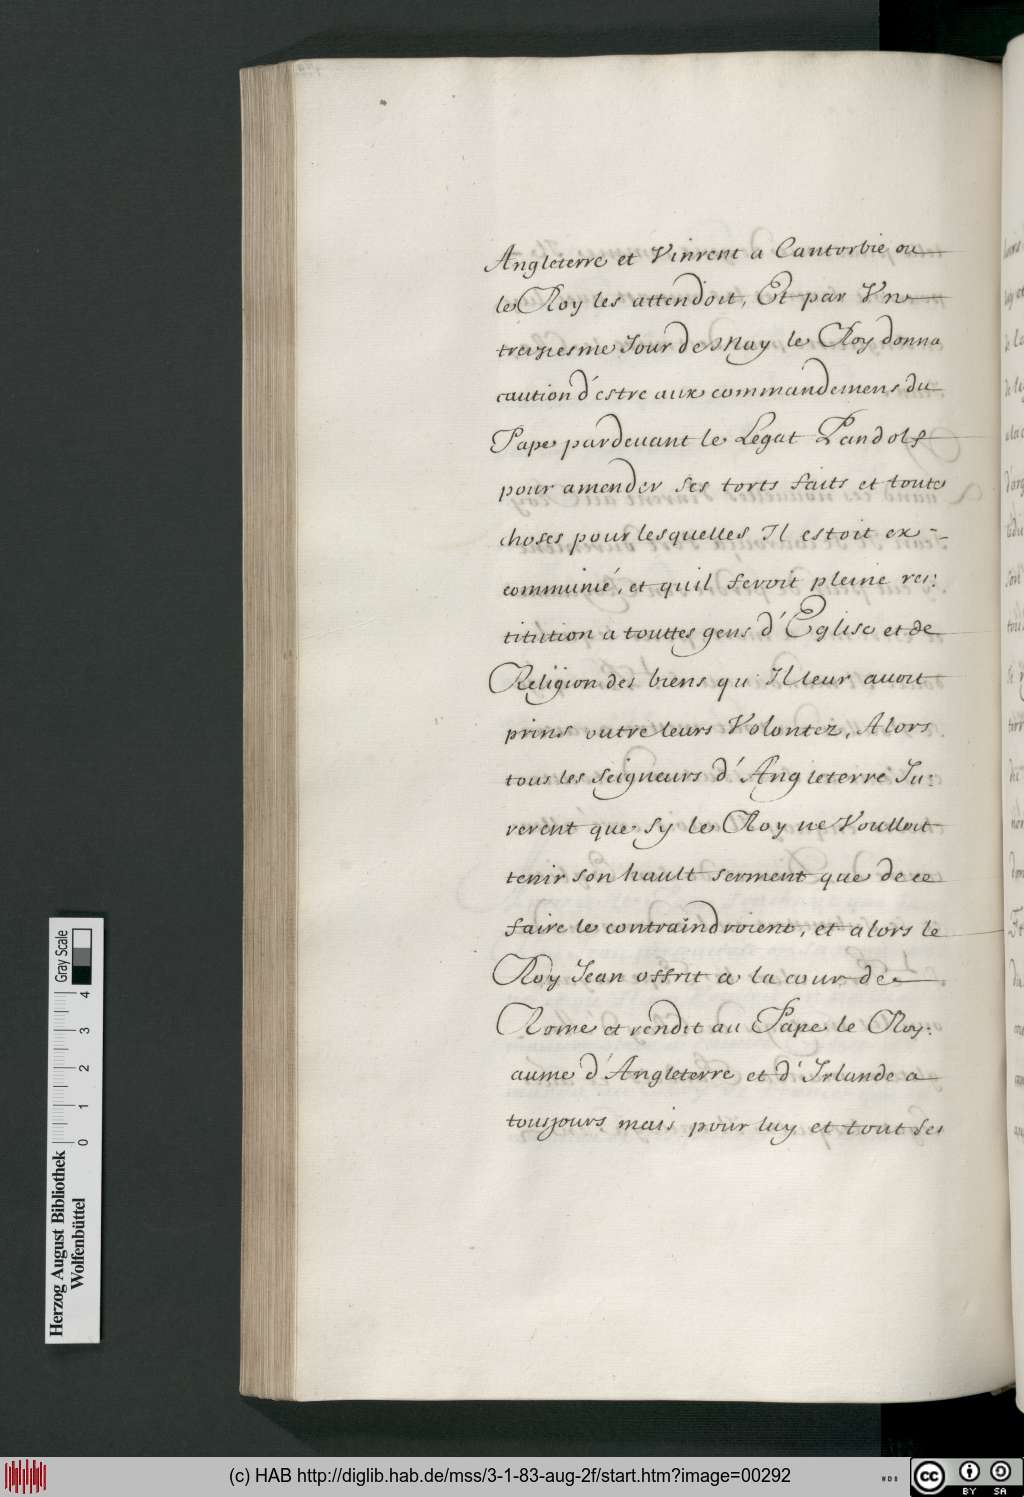 Angleterre et Vinrent a Cantorbie ou
le Roy les attendoit, Et par Vn
treziesme Jour de May le Roy donna
caution d'estre aux commandemens du
Pape pardevant le Legat Pandolf
pour amender ses torts faits et toute
choses pour lesquelles Il estoit ex-
communié, et quil feroit pleine res:
titution a touttes gens d'Eglise et de
Religion des biens qu Il leur avoit
prins outre leurs Volontez, Alors
tous les seigneurs d'Angleterre Ju:
rerent que sy le Roy ne Voulloit
tenir son hault serment que de ce
faire le contraindroient, et alors le
Roy Jean offrit a la cour de
Rome et rendit au Pape le Roy:
aume d'Angleterre et d'Irlande a
tousjours mais pour luy et tout ses
Gray Scale
4 3 2 1 0
Herzog August Bibliothek
Wolfenbüttel
(c) HAB http://diglib.hab.de/mss/3-1-83-aug-2f/start.htm?image=00292
WDB
cc
BY SA